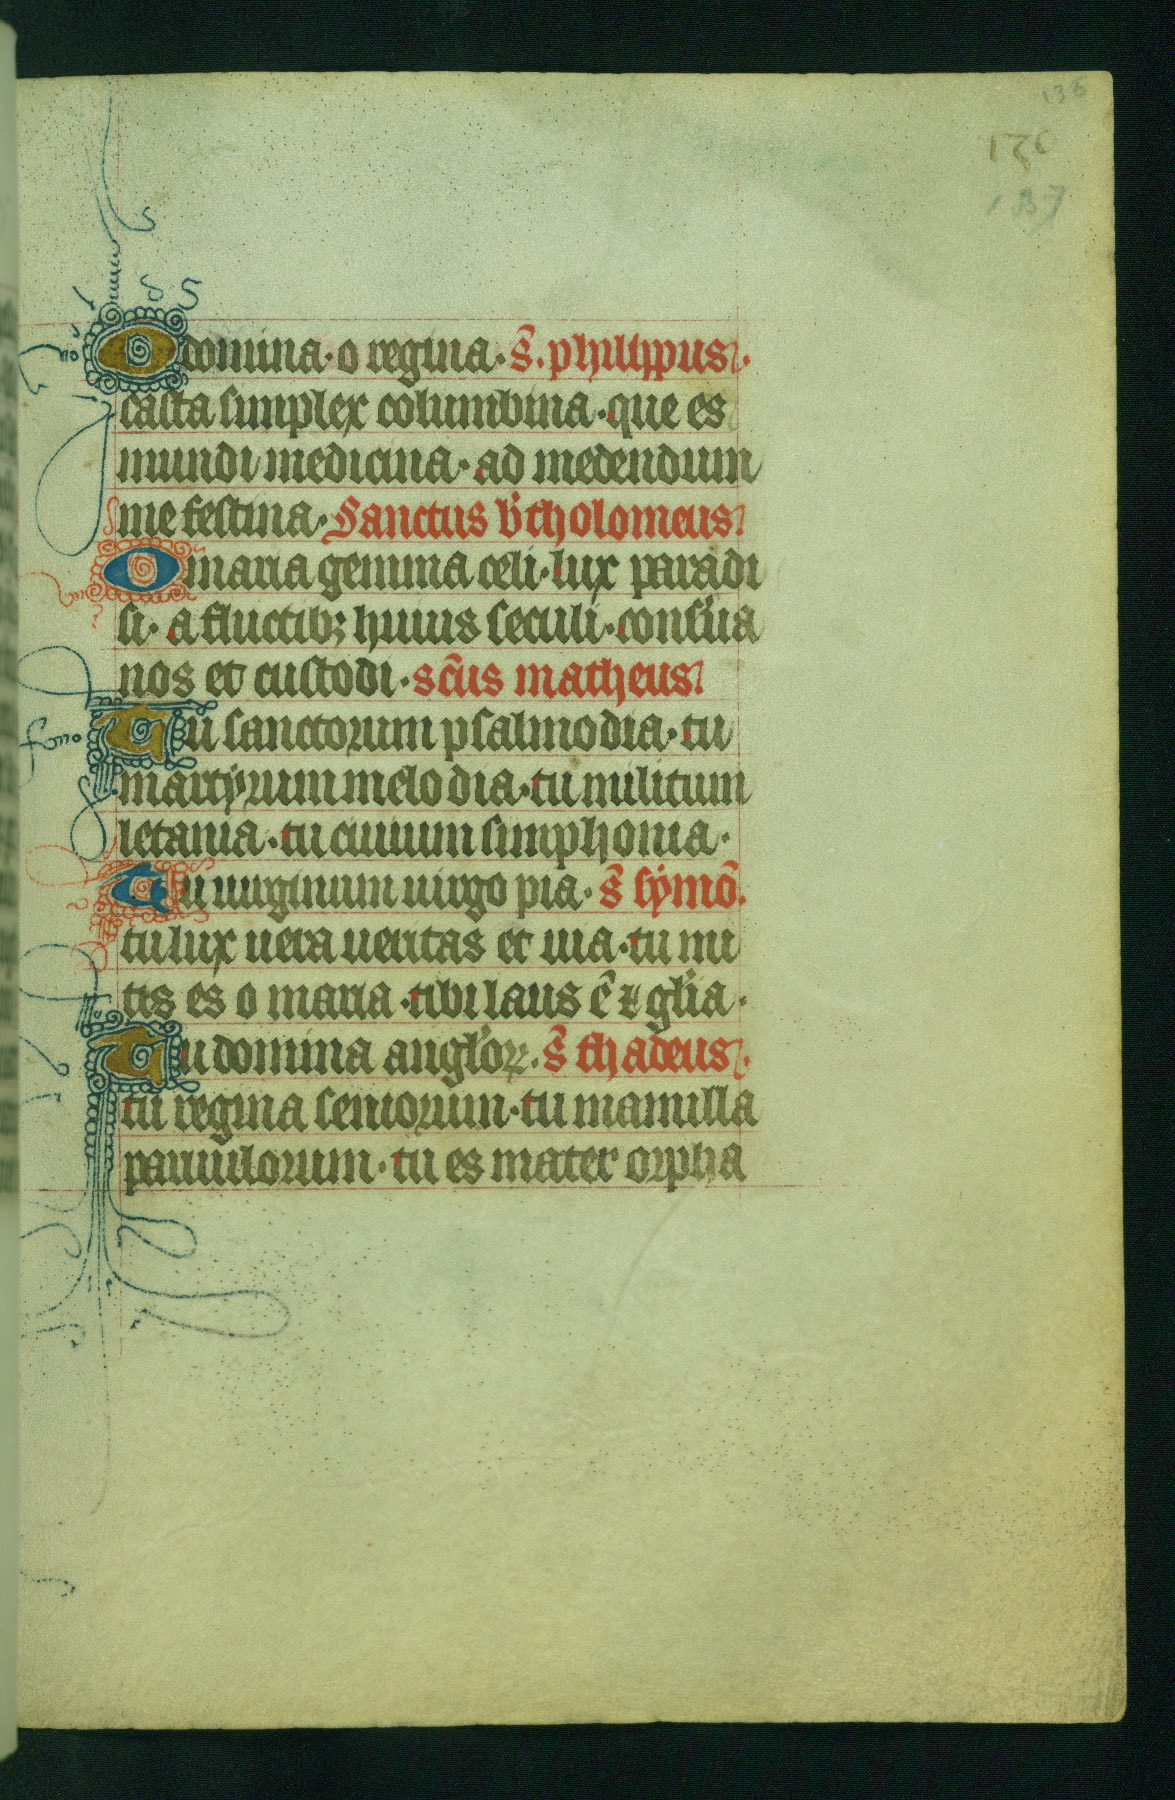 138
130
137
O domina · o regina · s̄. philippus.
casta simplex columbina · que es
mundi medicina · ad medendum
me festina · Sanctus b'tholomeus
O maria gemma celi · lux paradi
si · a fluctib; huius seculi · consu'a
nos et custodi · sc̄us matheus
Tu sanctorum psalmodia · tu
martyrum melodia · tu militum
letania · tu ciuium simphonia ·
Tu uirginum uirgo pia · s̄ symō.
tu lux uera ueritas et uia · tu mi
tis es o maria · tibi laus ē ⁊ gl'ia ·
Tu domina angl'oꝝ · s̄ thadeus.
tu regina seniorum · tu mamilla
paruulorum · tu es mater orpha